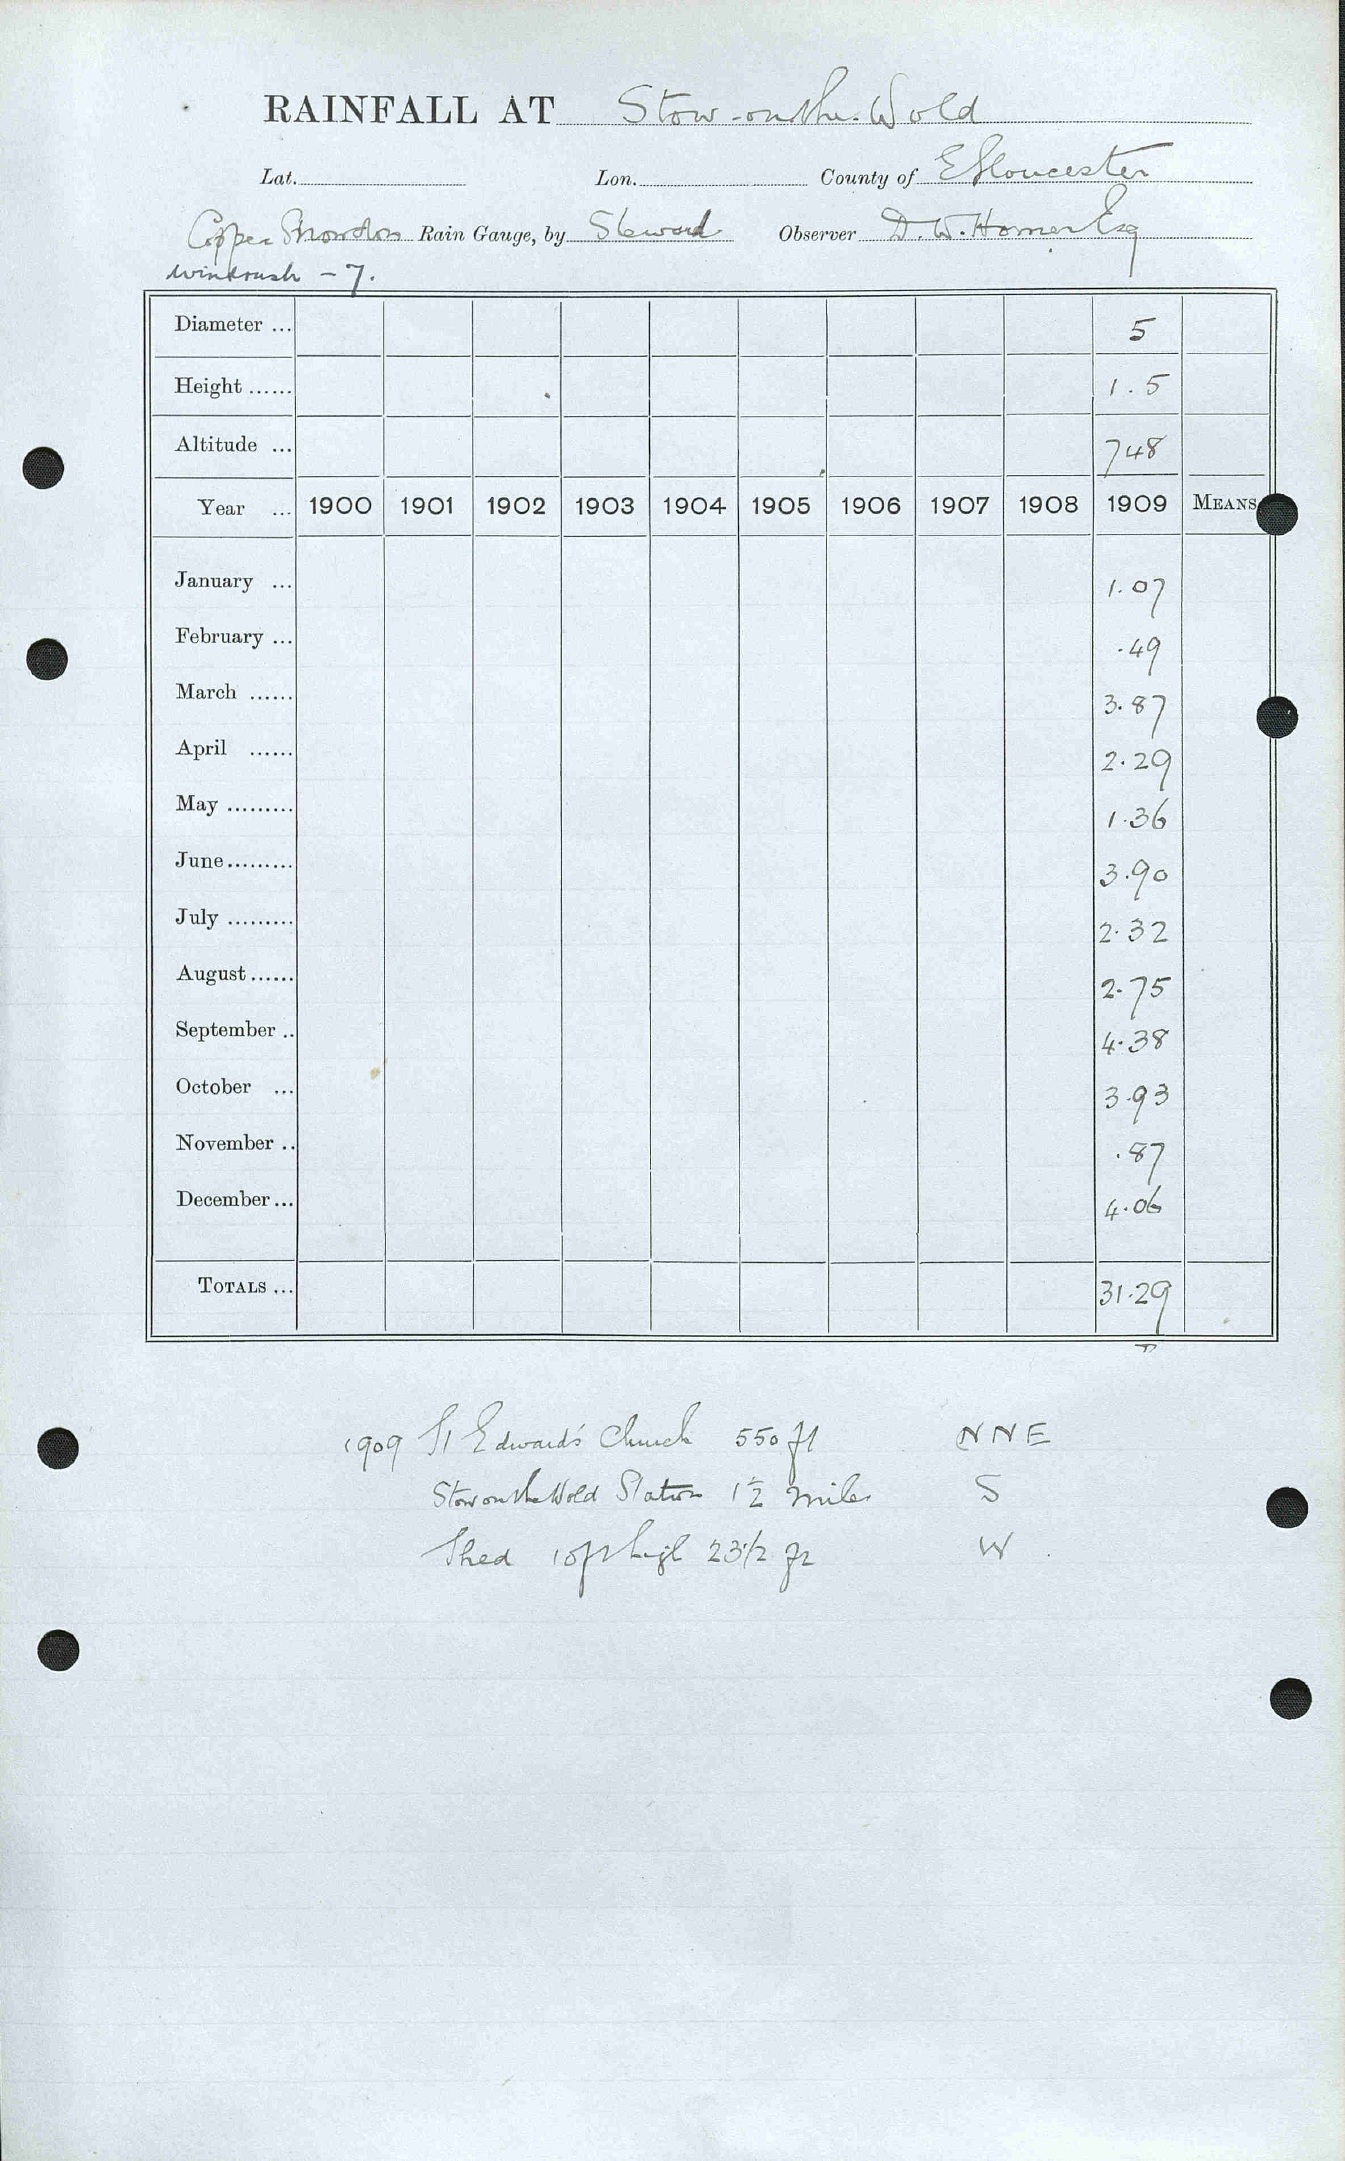 RAINFALL AT Stow-on-the-Wold
Lat. Lon. County of E Gloucester
Copper Snowdon Rain Gauge, by Steward Observer D. W. Horner Esq
Windrush - 7.
Diameter ... 5
Height ...... 1.5
Altitude ... 748
Year ... 1900 1901 1902 1903 1904 1905 1906 1907 1908 1909 MEANS
January ... 1.07
February ... .49
March ...... 3.87
April ...... 2.29
May ......... 1.36
June ......... 3.90
July ......... 2.32
August ...... 2.75
September .. 4.38
October ... 3.93
November .. .87
December ... 4.06
TOTALS ... 31.29
1909 St Edward's Church 550 ft NNE
Stow on the Wold Station 1½ miles S
Shed 10ft high 23½ ft W